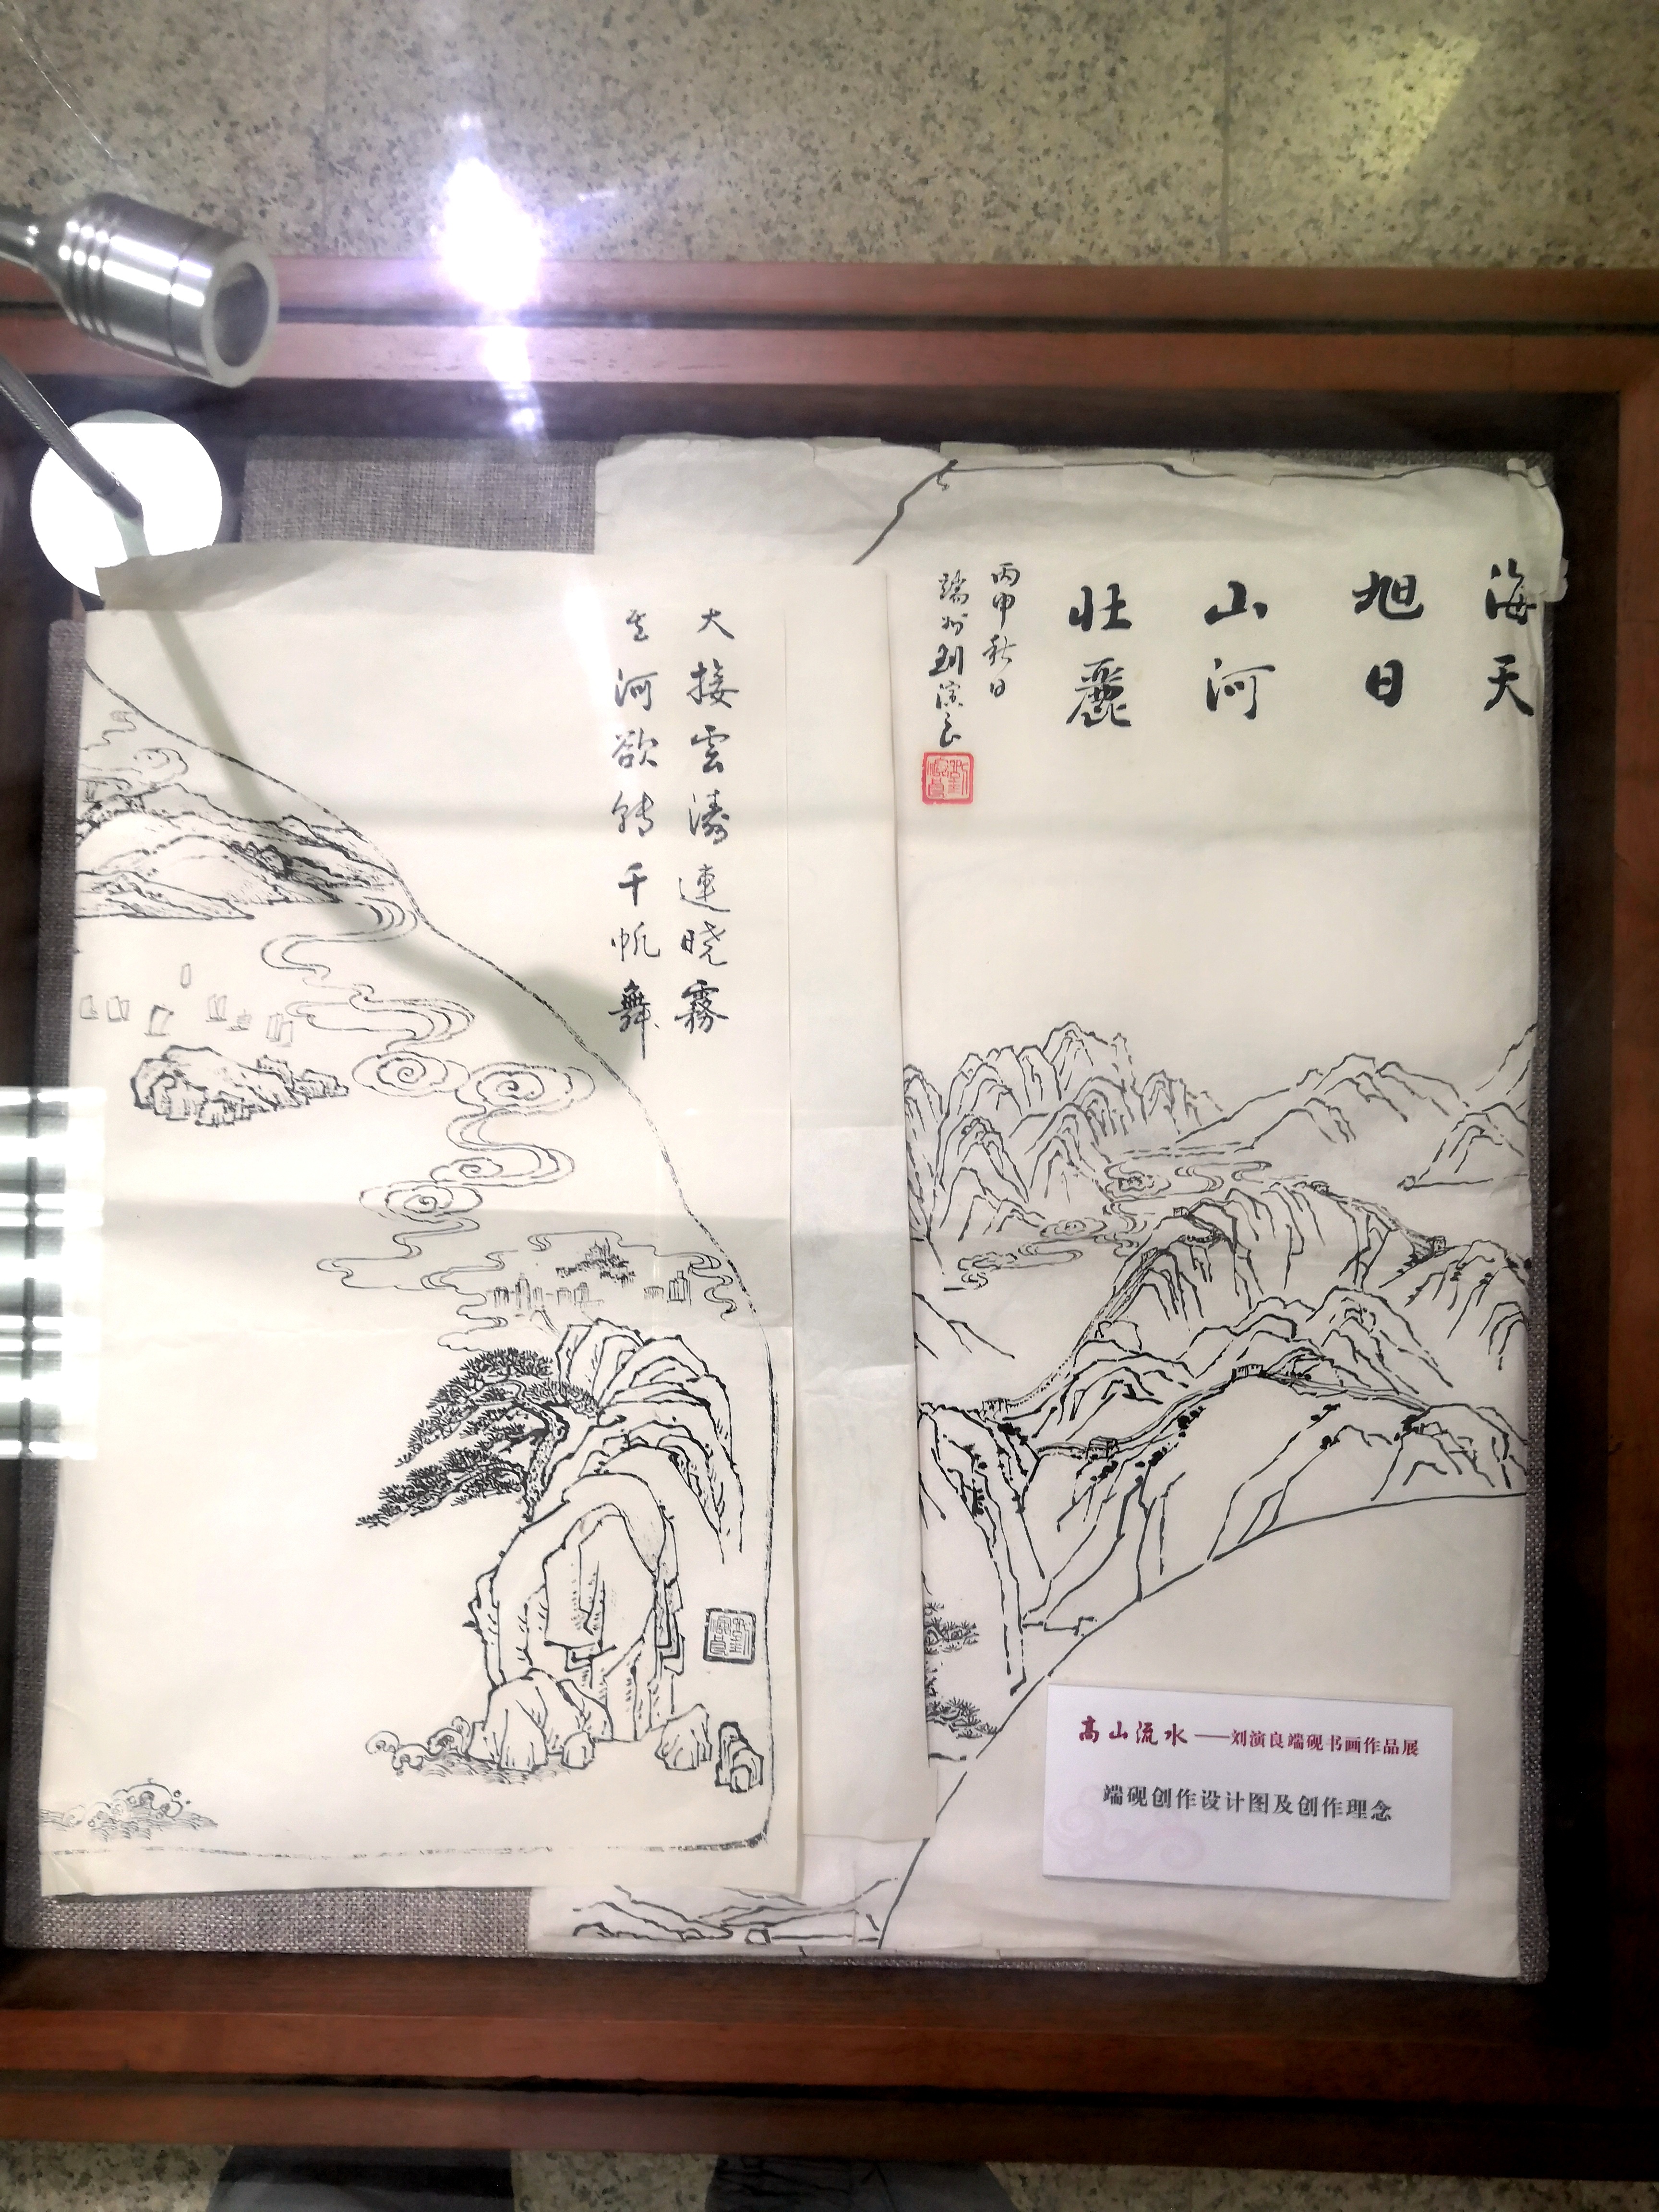 海天
旭日
山河
壮麗
丙申秋日
端州刘演良
大接雲濤連晓霧
星河欲转千帆舞
高山流水——刘演良端砚书画作品展
端砚创作设计图及创作理念